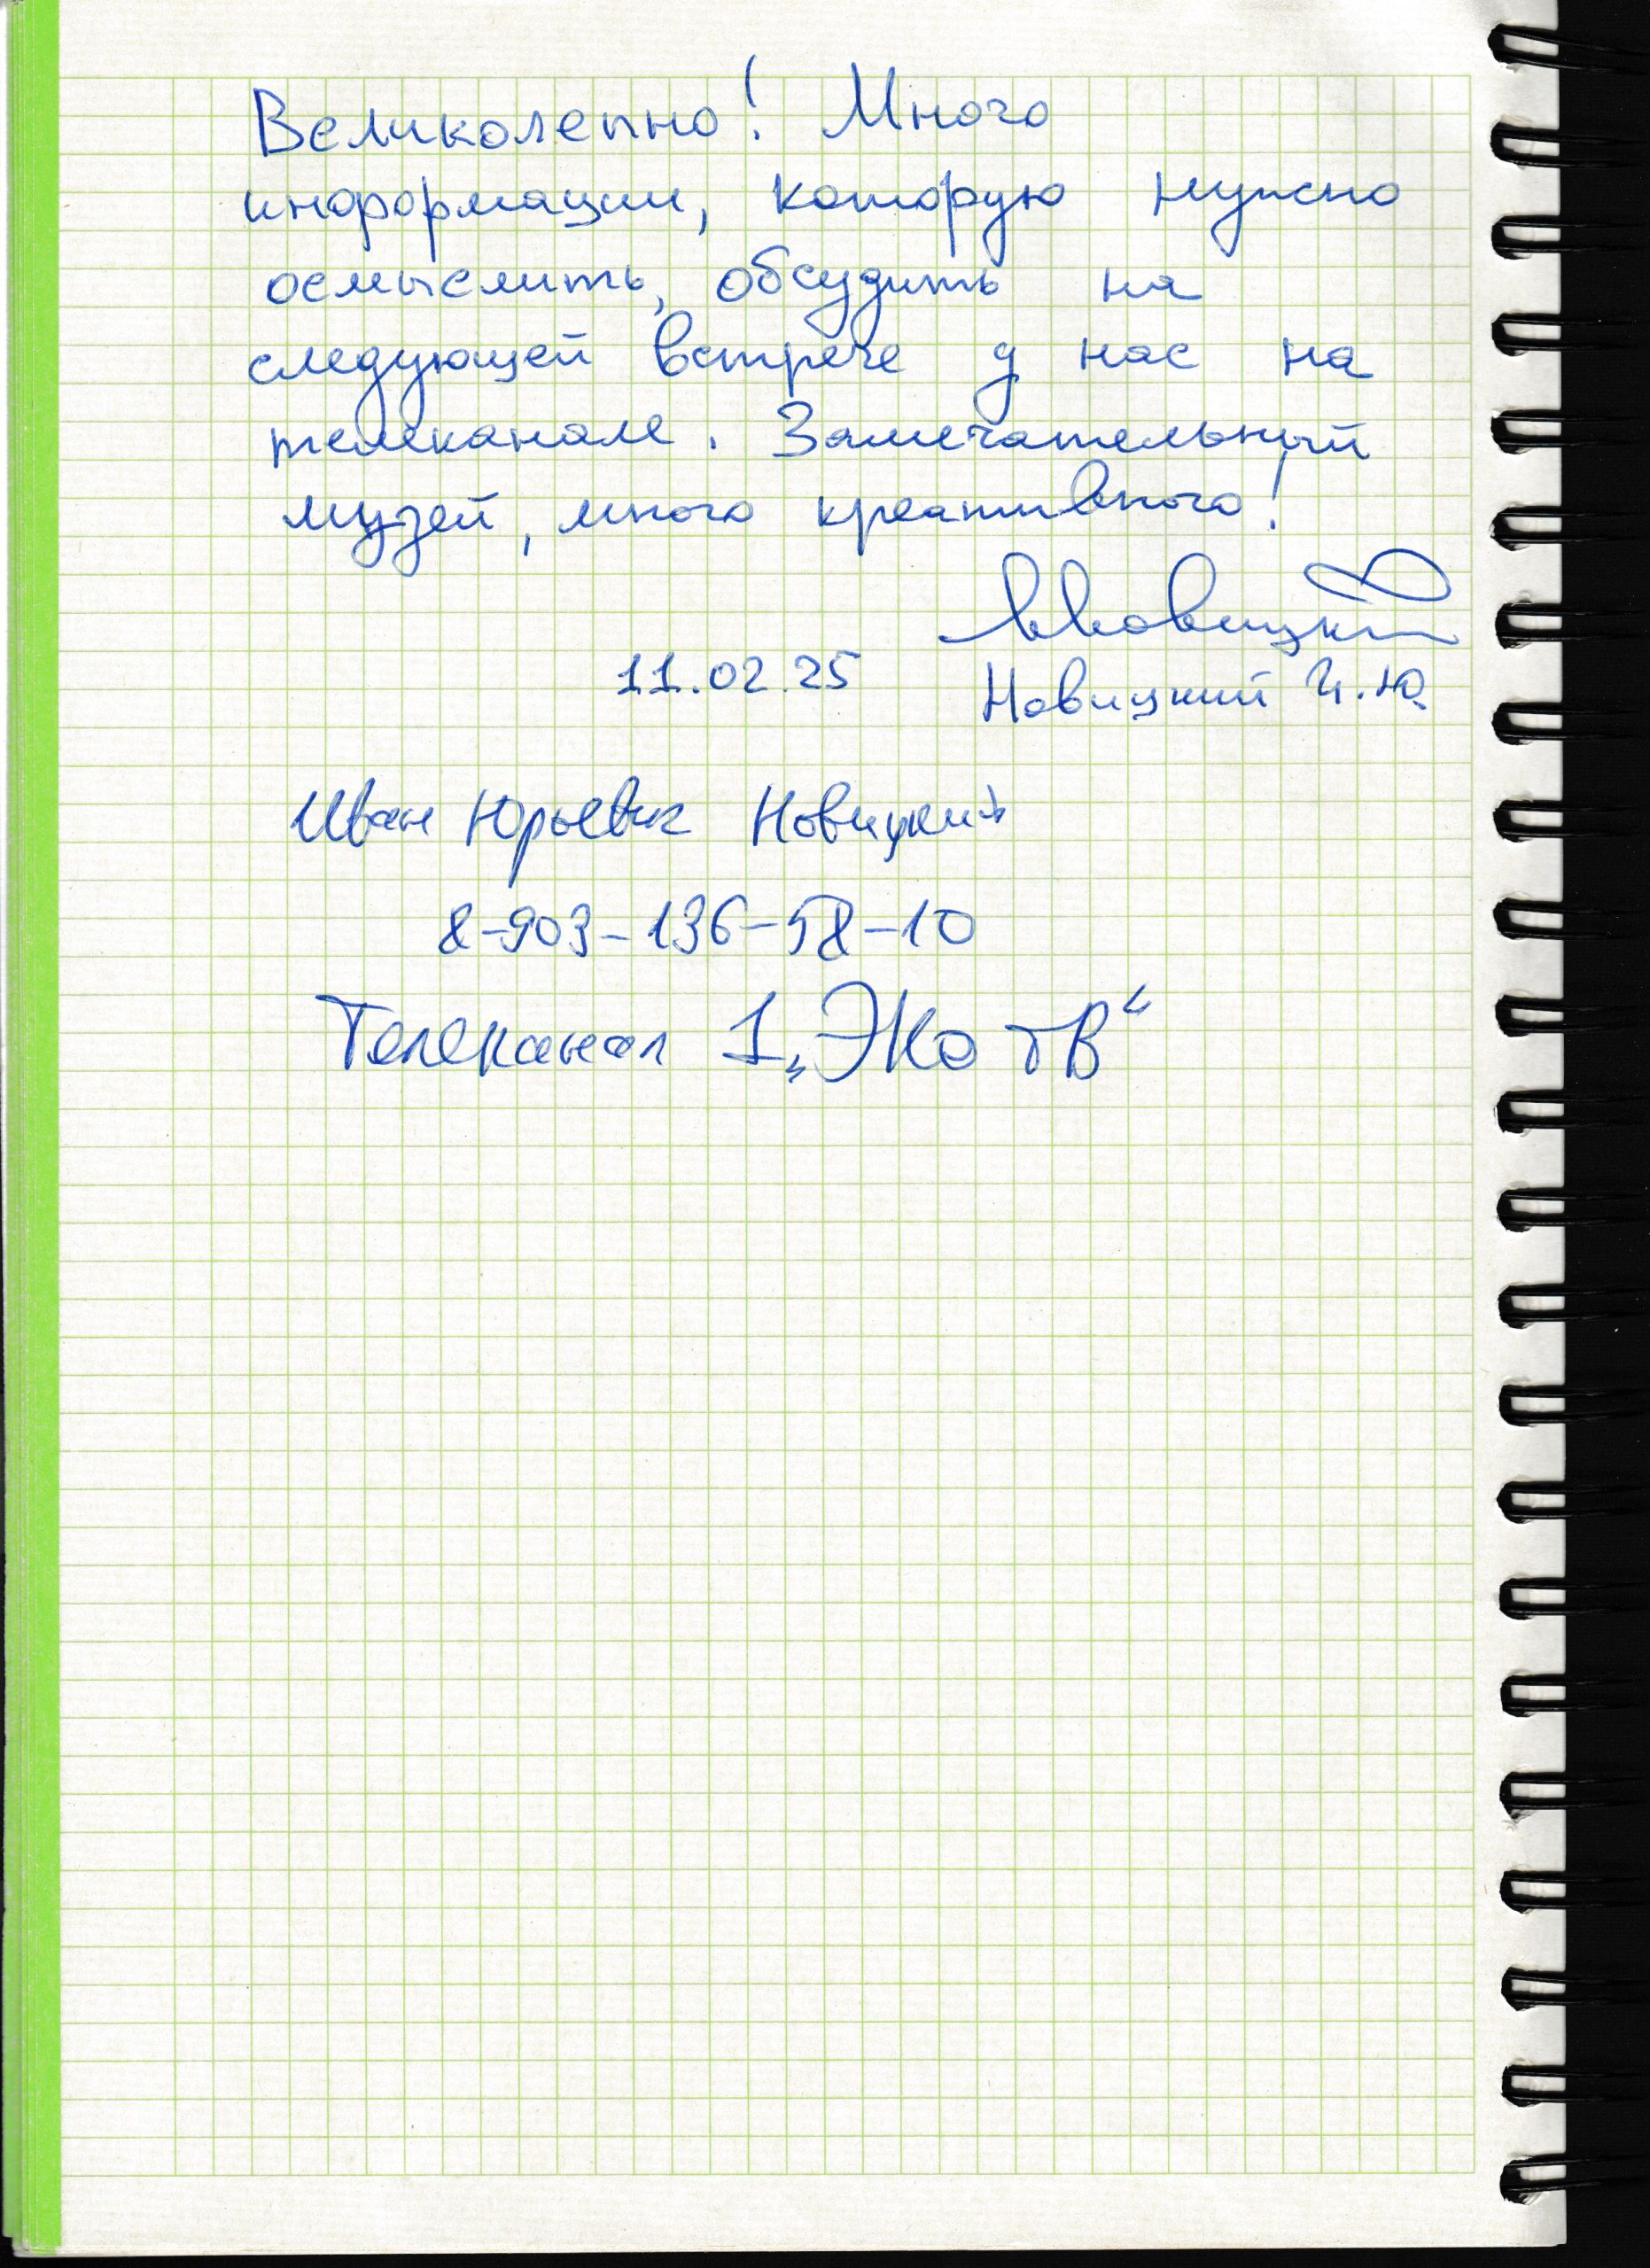 Великолепно! Много
информации, которую нужно
осмыслить, обсудить на
следующей встрече у нас на
телеканале. Замечательный
музей, много креативного!
Новицкий
11.02.25 Новицкий И.Ю.
Иван Юрьевич Новицкий
8-903-136-58-10
Телеканал 1 „Эко ТВ“